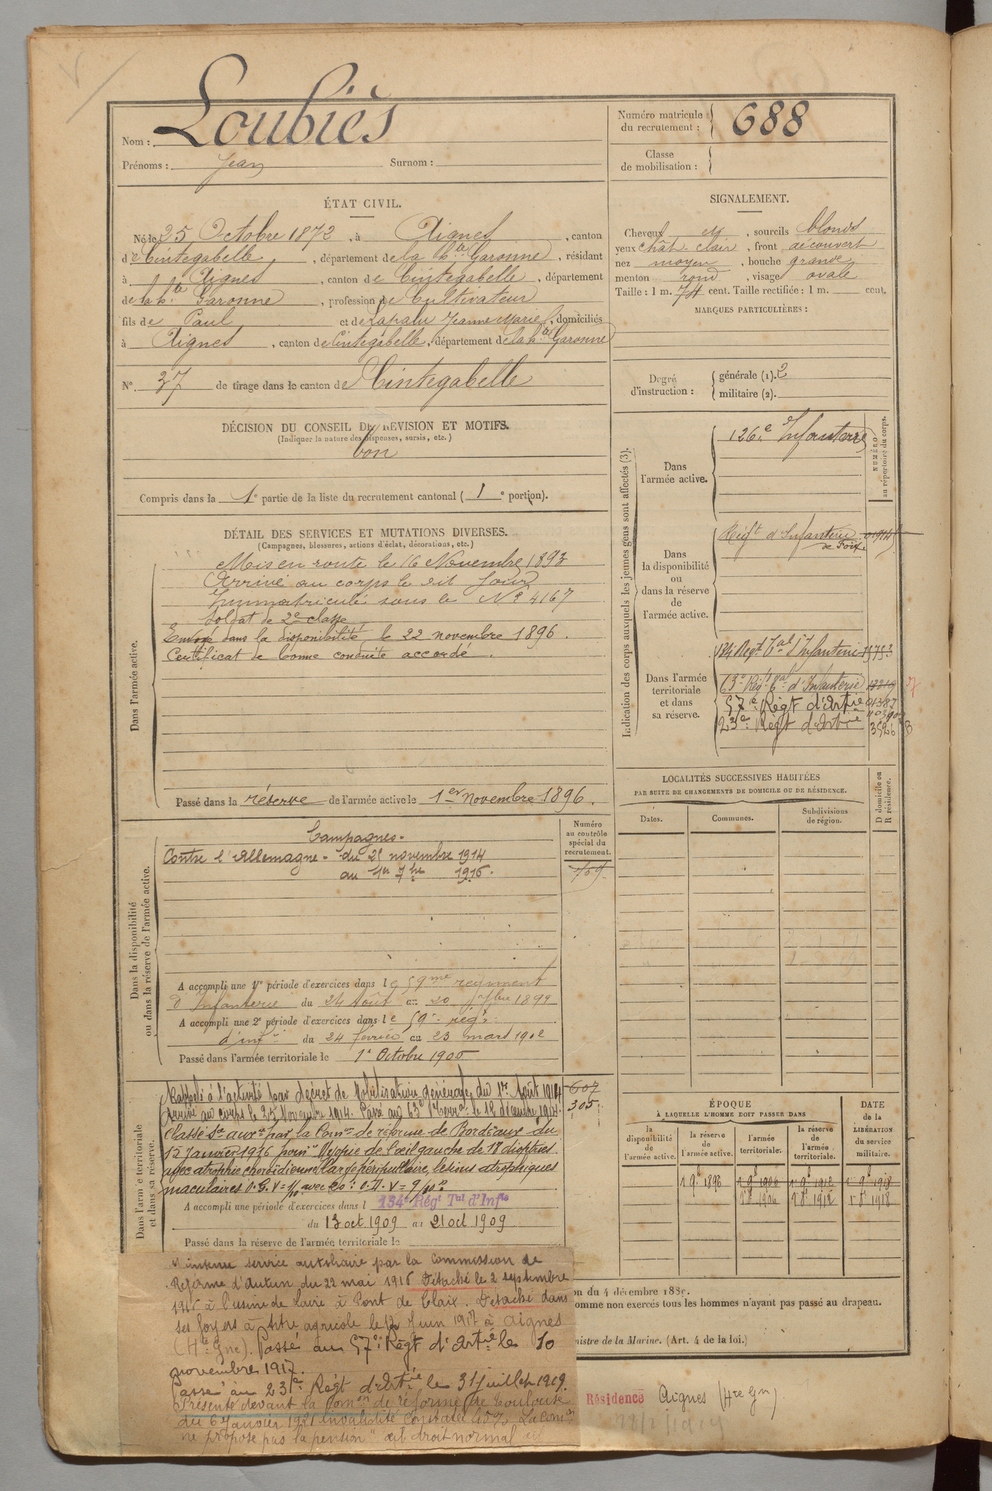 Nom : Loubiès
Prénoms : Jean Surnom :
Numéro matricule du recrutement : 688
Classe de mobilisation :
ÉTAT CIVIL.
Né le 25 Octobre 1872, à Aignes, canton
de Cintegabelle, département de la Hte Garonne, résidant
à Aignes, canton de Cintegabelle, département
de la Hte Garonne, profession de Cultivateur
fils de Paul et de Lapalu Jeanne Marie, domiciliés
à Aignes, canton de Cintegabelle, département de la Hte Garonne
N° 37 de tirage dans le canton de Cintegabelle
SIGNALEMENT.
Cheveux et, sourcils blonds
yeux chât clair, front découvert
nez moyen, bouche grande
menton rond, visage ovale
Taille : 1 m. 74 cent. Taille rectifiée : 1 m. cent.
MARQUES PARTICULIÈRES :
Degré d'instruction : générale (1). 2
militaire (2).
DÉCISION DU CONSEIL DE REVISION ET MOTIFS.
(Indiquer la nature des dispenses, sursis, etc.)
bon
Compris dans la 1e partie de la liste du recrutement cantonal (1e portion).
DÉTAIL DES SERVICES ET MUTATIONS DIVERSES.
(Campagnes, blessures, actions d'éclat, décorations, etc.)
Dans l'armée active.
Mis en route le 16 Novembre 1893
Arrivé au corps le dit jour
Immatriculé sous le N° 4167
Soldat de 2e classe
Envoyé dans la disponibilité, le 22 novembre 1896.
Certificat de bonne conduite accordé.
Passé dans la réserve de l'armée active le 1er novembre 1896.
Indication des corps auxquels les jeunes gens sont affectés (3).
NUMÉRO au répertoire du corps.
Dans l'armée active.
126e Infanterie
Dans la disponibilité ou dans la réserve de l'armée active.
Régt d'Infanterie de Foix
Dans l'armée territoriale et dans sa réserve.
134 Régt Tal d'Infanterie
63e Régt Tal d'Infanterie
57e Régt d'Artie
23e Régt d'Artie
LOCALITÉS SUCCESSIVES HABITÉES
PAR SUITE DE CHANGEMENTS DE DOMICILE OU DE RÉSIDENCE.
Dates. Communes. Subdivisions de région. D domicile ou R résidence.
Dans la disponibilité ou dans la réserve de l'armée active.
Numéro au contrôle spécial du recrutement.
Campagnes.
Contre l'Allemagne - du 25 novembre 1914
au 1er 7bre 1916.
A accompli une 1re période d'exercices dans le 59me régiment
d'Infanterie du 24 Août au 20 7bre 1899
A accompli une 2e période d'exercices dans le 59e régt
d'infie du 24 février au 23 mars 1902
Passé dans l'armée territoriale le 1er Octobre 1906
Dans l'armée territoriale et dans sa réserve.
Rappelé à l'activité par décret de Mobilisation générale du 1er Août 1914
Arrivé au corps le 25 Novembre 1914. Passé au 63e Terral le 12 décembre 1914.
607
305
Classé Sce auxre par la Comon de réforme de Bordeaux du
12 janvier 1916 pour Myopie de l'œil gauche de 18 dioptries
avec atrophie choroïdienne large péripapillaire, lésions atrophiques
maculaires
A accompli une période d'exercices dans le 134e Régt Tal d'Infie
du 13 oct 1909 au 21 oct 1909
Passé dans la réserve de l'armée territoriale le
ÉPOQUE
À LAQUELLE L'HOMME DOIT PASSER DANS
la disponibilité de l'armée active. la réserve de l'armée active. l'armée territoriale. la réserve de l'armée territoriale.
DATE de la LIBÉRATION du service militaire.
Maintenu service auxiliaire par la Commission de
Réforme d'Autun du 22 mai 1916 Détaché le 2 septembre
1916 à l'usine de Lavie à Pont de Claix. Détaché dans
ses foyers à titre agricole le 12 Juin 1917 à Aignes
(Hte Gne). Passé au 57e Régt d'Artie le 10
novembre 1917.
Passé au 23e Régt d'Artie le 31 juillet 1919.
Présenté devant la Comon de réforme de Toulouse
du 6 Janvier 1921 invalidité constatée 45%. La Comon
ne propose pas la pension "œil droit normal
du 4 décembre 188
omme non exercés tous les hommes n'ayant pas passé au drapeau.
nistre de la Marine. (Art. 4 de la loi.)
Résidence Aignes (Hte Gne)